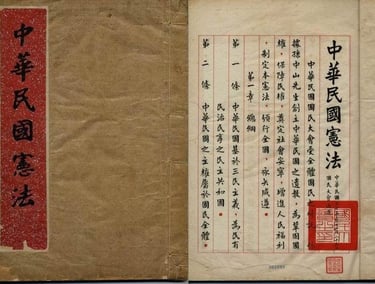 中華民國憲法
中華民國憲法
中華民國
國民大會
中華民國國民大會受全體國民
據孫中山先生創立中華民國之遺教，為鞏固國
權，保障民權，奠定社會安寧，增進人民福利
，制定本憲法，頒行全國，永矢咸遵。
第一章 總綱
第一條 中華民國基於三民主義，為民有
民治民享之民主共和國。
第二條 中華民國之主權屬於國民全體。